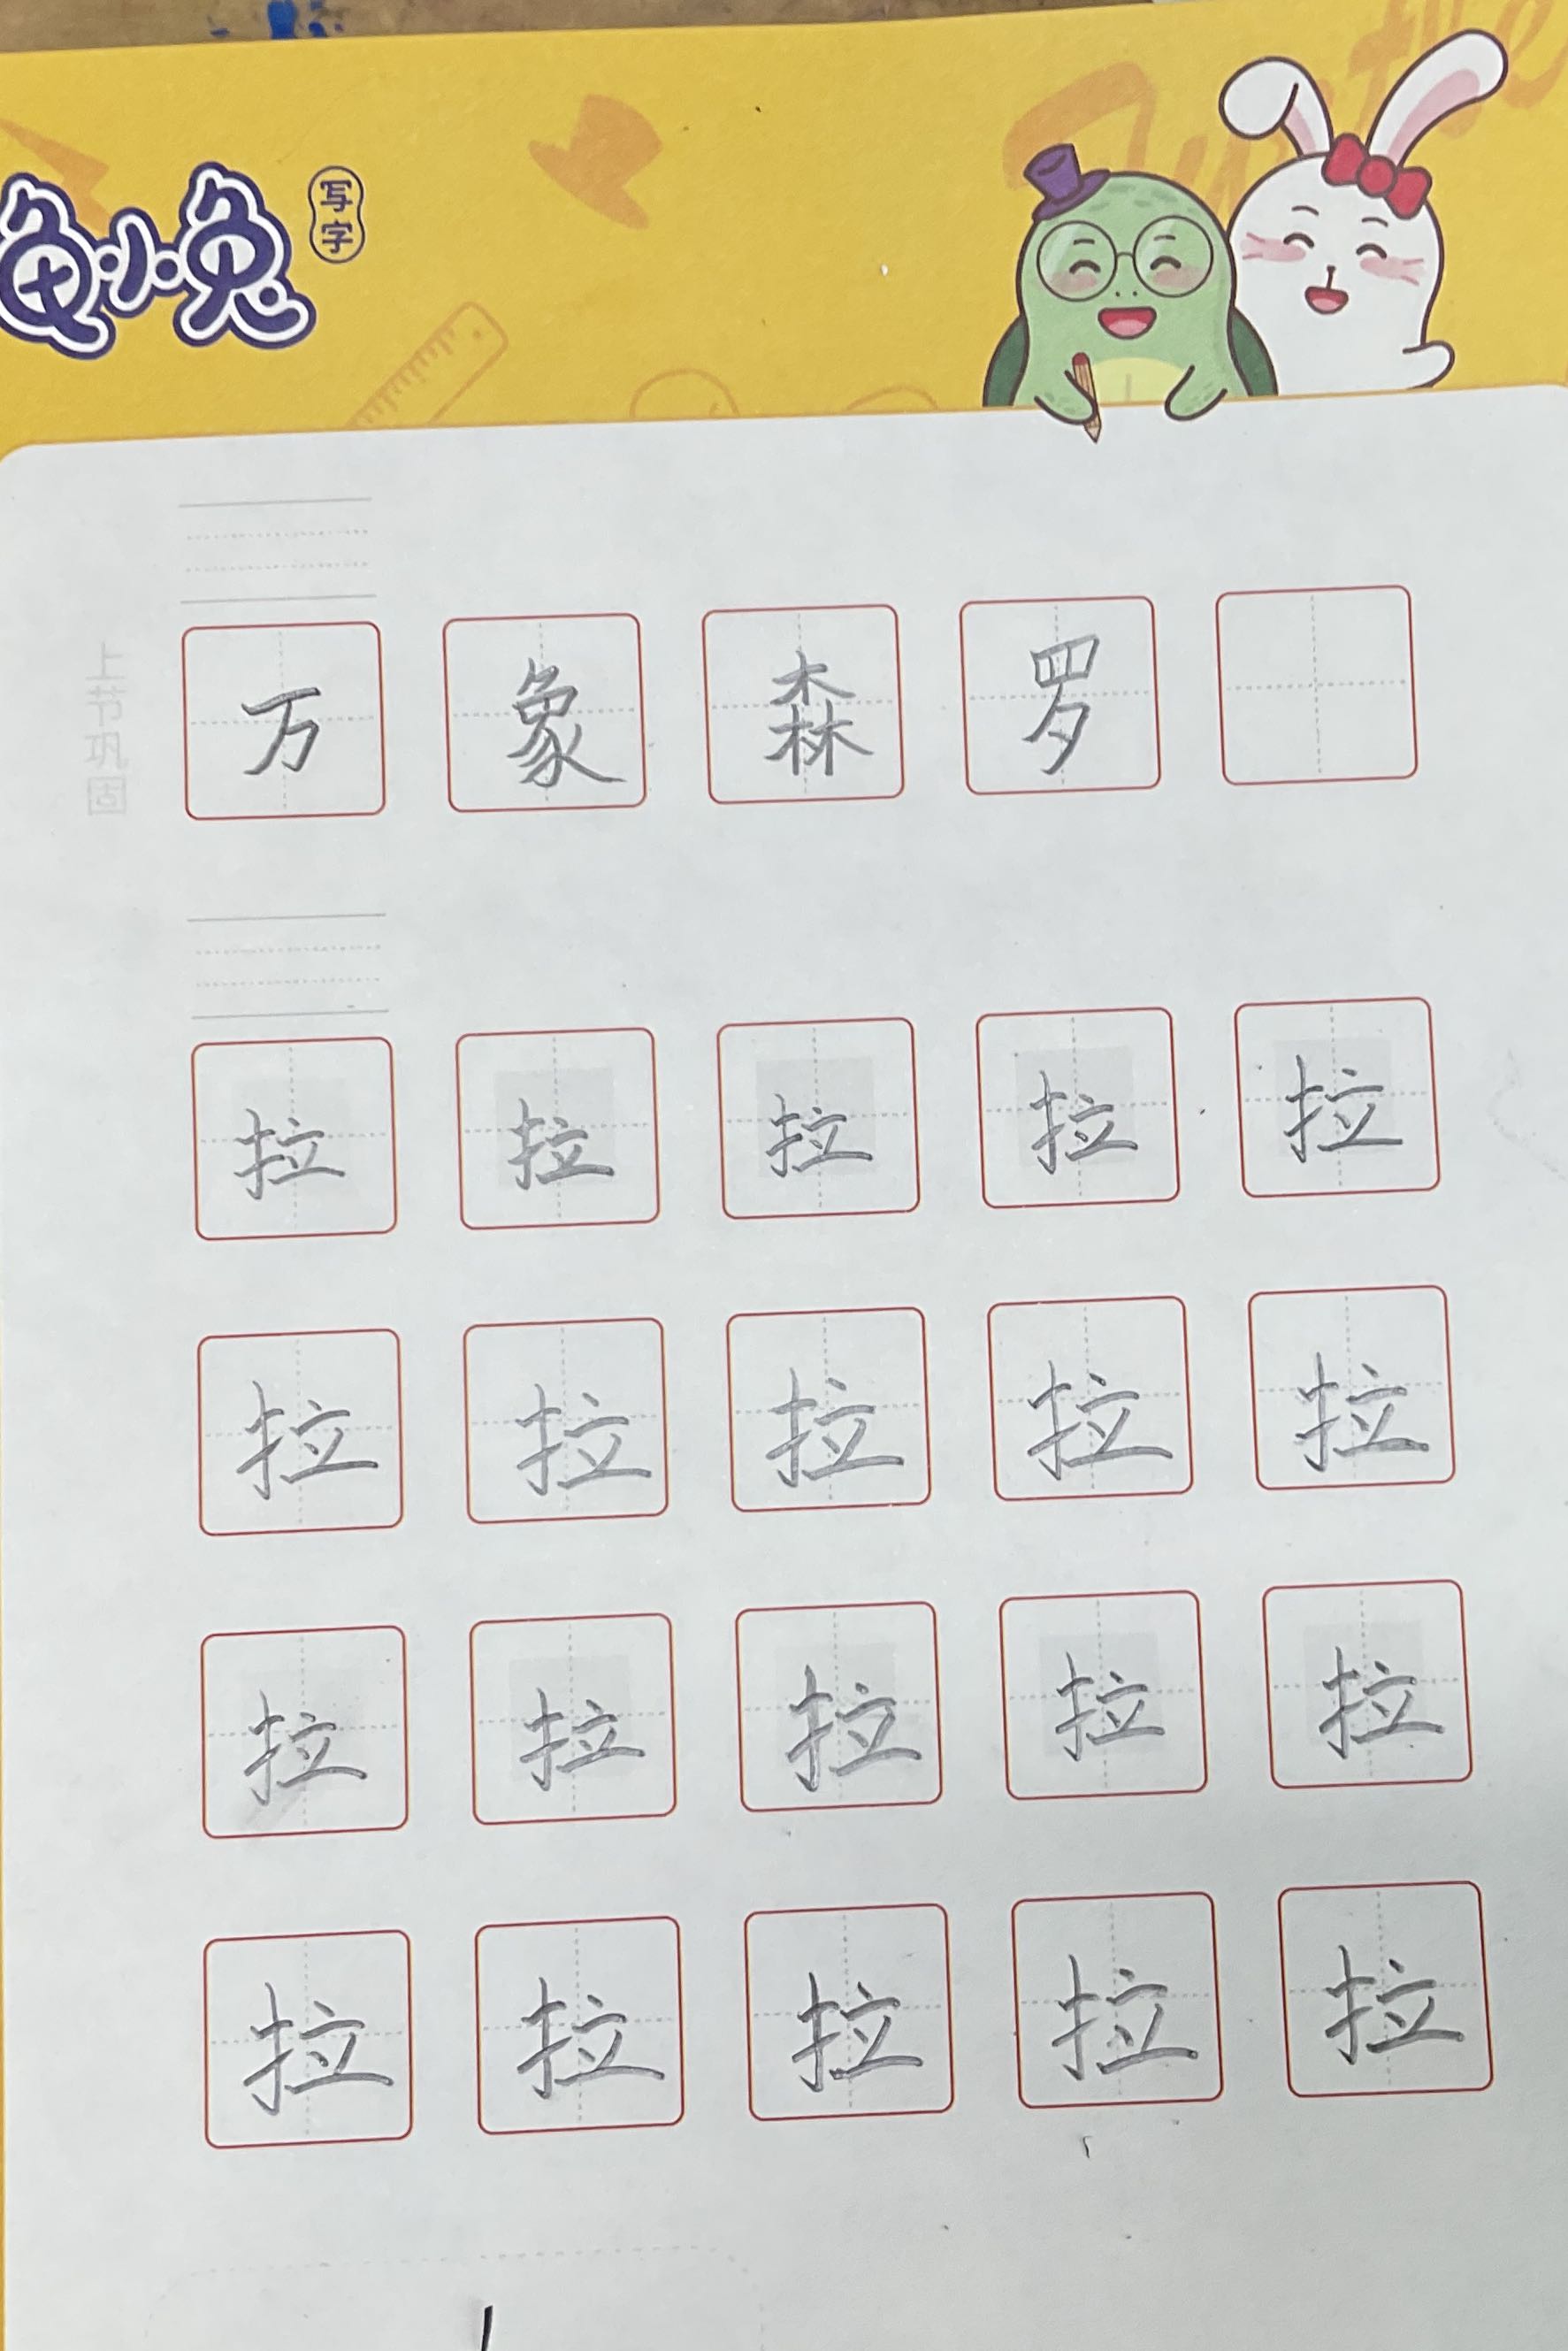 龟小兔
写字
上节巩固
万 象 森 罗
拉 拉 拉 拉 拉
拉 拉 拉 拉 拉
拉 拉 拉 拉 拉
拉 拉 拉 拉 拉